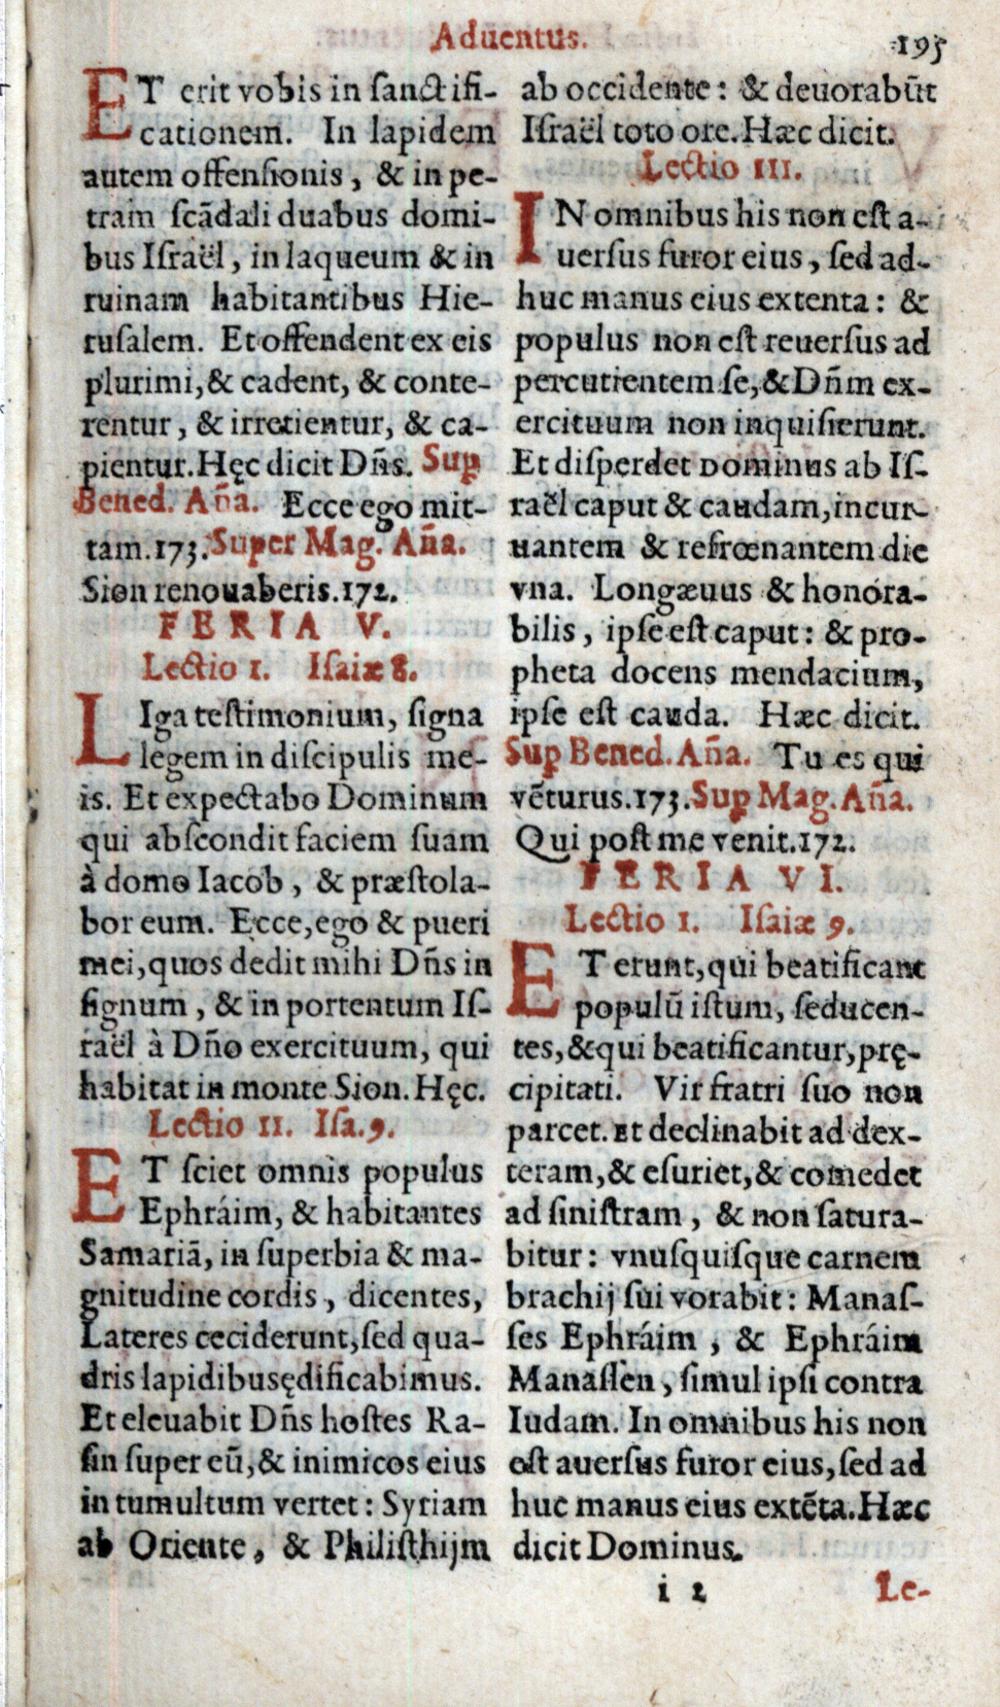 Aduentus.
195
ET erit vobis in sanctifi-
cationem. In lapidem
autem offensionis, & in pe-
tram scādali duabus domi-
bus Israël, in laqueum & in
ruinam habitantibus Hie-
rusalem. Et offendent ex eis
plurimi, & cadent, & conte-
rentur, & irretientur, & ca-
pientur. Hęc dicit Dñs. Sup
Bened. Aña. Ecce ego mit-
tam. 173. Super Mag. Aña.
Sion renouaberis. 172.
FERIA V.
Lectio 1. Isaiæ 8.
LIga testimonium, signa
legem in discipulis me-
is. Et expectabo Dominum
qui abscondit faciem suam
à domo Iacob, & præstola-
bor eum. Ecce, ego & pueri
mei, quos dedit mihi Dñs in
signum, & in portentum Is-
raël à Dño exercituum, qui
habitat in monte Sion. Hęc.
Lectio II. Isa. 9.
ET sciet omnis populus
Ephráim, & habitantes
Samariā, in superbia & ma-
gnitudine cordis, dicentes,
Lateres ceciderunt, sed qua-
dris lapidibus ędificabimus.
Et eleuabit Dñs hostes Ra-
sin super eū, & inimicos eius
in tumultum vertet: Syriam
ab Oriente, & Philisthijm
ab occidente: & deuorabūt
Israël toto ore. Hæc dicit.
Lectio III.
IN omnibus his non est a-
uersus furor eius, sed ad-
huc manus eius extenta: &
populus non est reuersus ad
percutientem se, & Dñm ex-
ercituum non inquisierunt.
Et disperdet Dominus ab Is-
raël caput & caudam, incur-
uantem & refrœnantem die
vna. Longæuus & honora-
bilis, ipse est caput: & pro-
pheta docens mendacium,
ipse est cauda. Hæc dicit.
Sup Bened. Aña. Tu es qui
vēturus. 173. Sup Mag. Aña.
Qui post me venit. 172.
FERIA VI.
Lectio 1. Isaiæ 9.
ET erunt, qui beatificant
populū istum, seducen-
tes, & qui beatificantur, prę-
cipitati. Vir fratri suo non
parcet. Et declinabit ad dex-
teram, & esuriet, & comedet
ad sinistram, & non satura-
bitur: vnusquisque carnem
brachij sui vorabit: Manas-
ses Ephráim, & Ephráim
Manassen, simul ipsi contra
Iudam. In omnibus his non
est auersus furor eius, sed ad
huc manus eius extēta. Hæc
dicit Dominus.
i 2
Le-